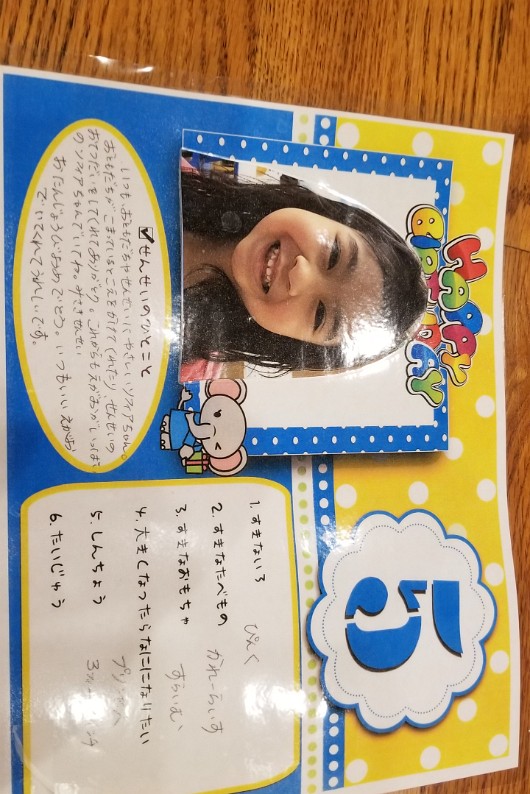 HAPPY
BIRTHDAY
5
せんせいのひとこと
いつもおともだちやせんせいにやさしいソフィアちゃん。
おともだちがこまっているとこえをかけてくれたり せんせいの
おてつだいをしてくれてありがとう。これからもえがおがいっぱい
のソフィアちゃんでいてね。
おたんじょうびおめでとう。いつもいいえがお
でいてくれてうれしいです。
1. すきないろ
ぴんく
2. すきなたべもの
かれーらいす
3. すきなおもちゃ
すらいむ
4. 大きくなったらなにになりたい
5. しんちょう
6. たいじゅう